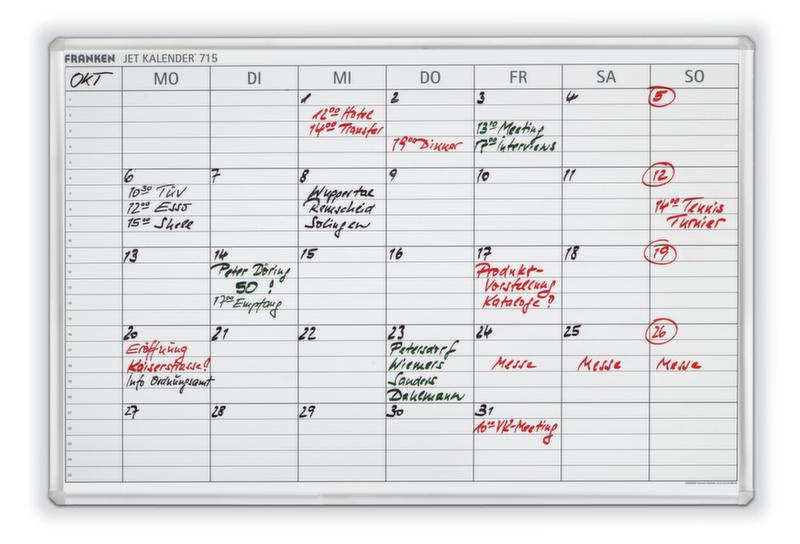 FRANKEN JET KALENDER 715
OKT MO DI MI DO FR SA SO
1 2 3 4 5
12⁰⁰ Hotel
14⁰⁰ Transfer
19⁰⁰ Dinner
13³⁰ Meeting
17⁰⁰ Interviews
6 7 8 9 10 11 12
10³⁰ TÜV
12⁰⁰ Esso
15⁰⁰ Shell
Wuppertal
Remscheid
Solingen
14⁰⁰ Tennis
Turnier
13 14 15 16 17 18 19
Peter Döring
50!
17⁰⁰ Empfang
Produkt-
Vorstellung
Kataloge?
20 21 22 23 24 25 26
Eröffnung
Kaiserstrasse!
Info Ordnungsamt
Petersdorf
Wiemers
Sanders
Dahlmann
Messe Messe Messe
27 28 29 30 31
10⁰⁰ VK-Meeting